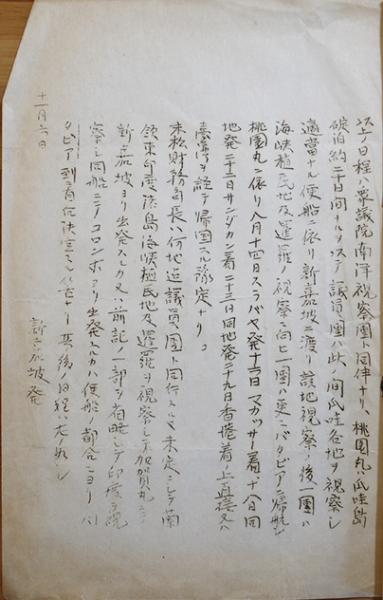 以上ノ日程ハ衆議院南洋視察團ト同伴ナリ、桃園丸ハ爪哇島
碇泊約二十日間ナルヲ以テ議員團ハ此ノ間爪哇各地ヲ視察シ
適當ナル便船ニ依リ新嘉坡ニ渡リ該地視察ノ後一團ハ
海峡植民地及暹羅ノ視察ニ向ヒ一團ハ更ニバタビアニ帰航シ
桃園丸ニ依リ八月十四日スラバヤ発十六日マカッサー着十八日同
地発二十三日サンダカン着二十三日同地発二十九日香港着ノ上直接又ハ
臺湾ヲ経テ帰国ノ予定ナリ
末松財務司長ハ何地迄議員團ト同行スルヤ未定ニシテ蘭
領東印度諸島海峡植民地及暹羅ヲ視察シ加賀丸ニテ
新嘉坡ヨリ出発スルカ又ハ前記ノ一部ヲ省略シテ印度ヲ視
察シ同船ニテコロンボヨリ出発スルカハ便船ノ都合ニヨリバ
タビア到着後決定
其後ノ日程ハ左ノ如シ
十一月六日 新嘉坡発